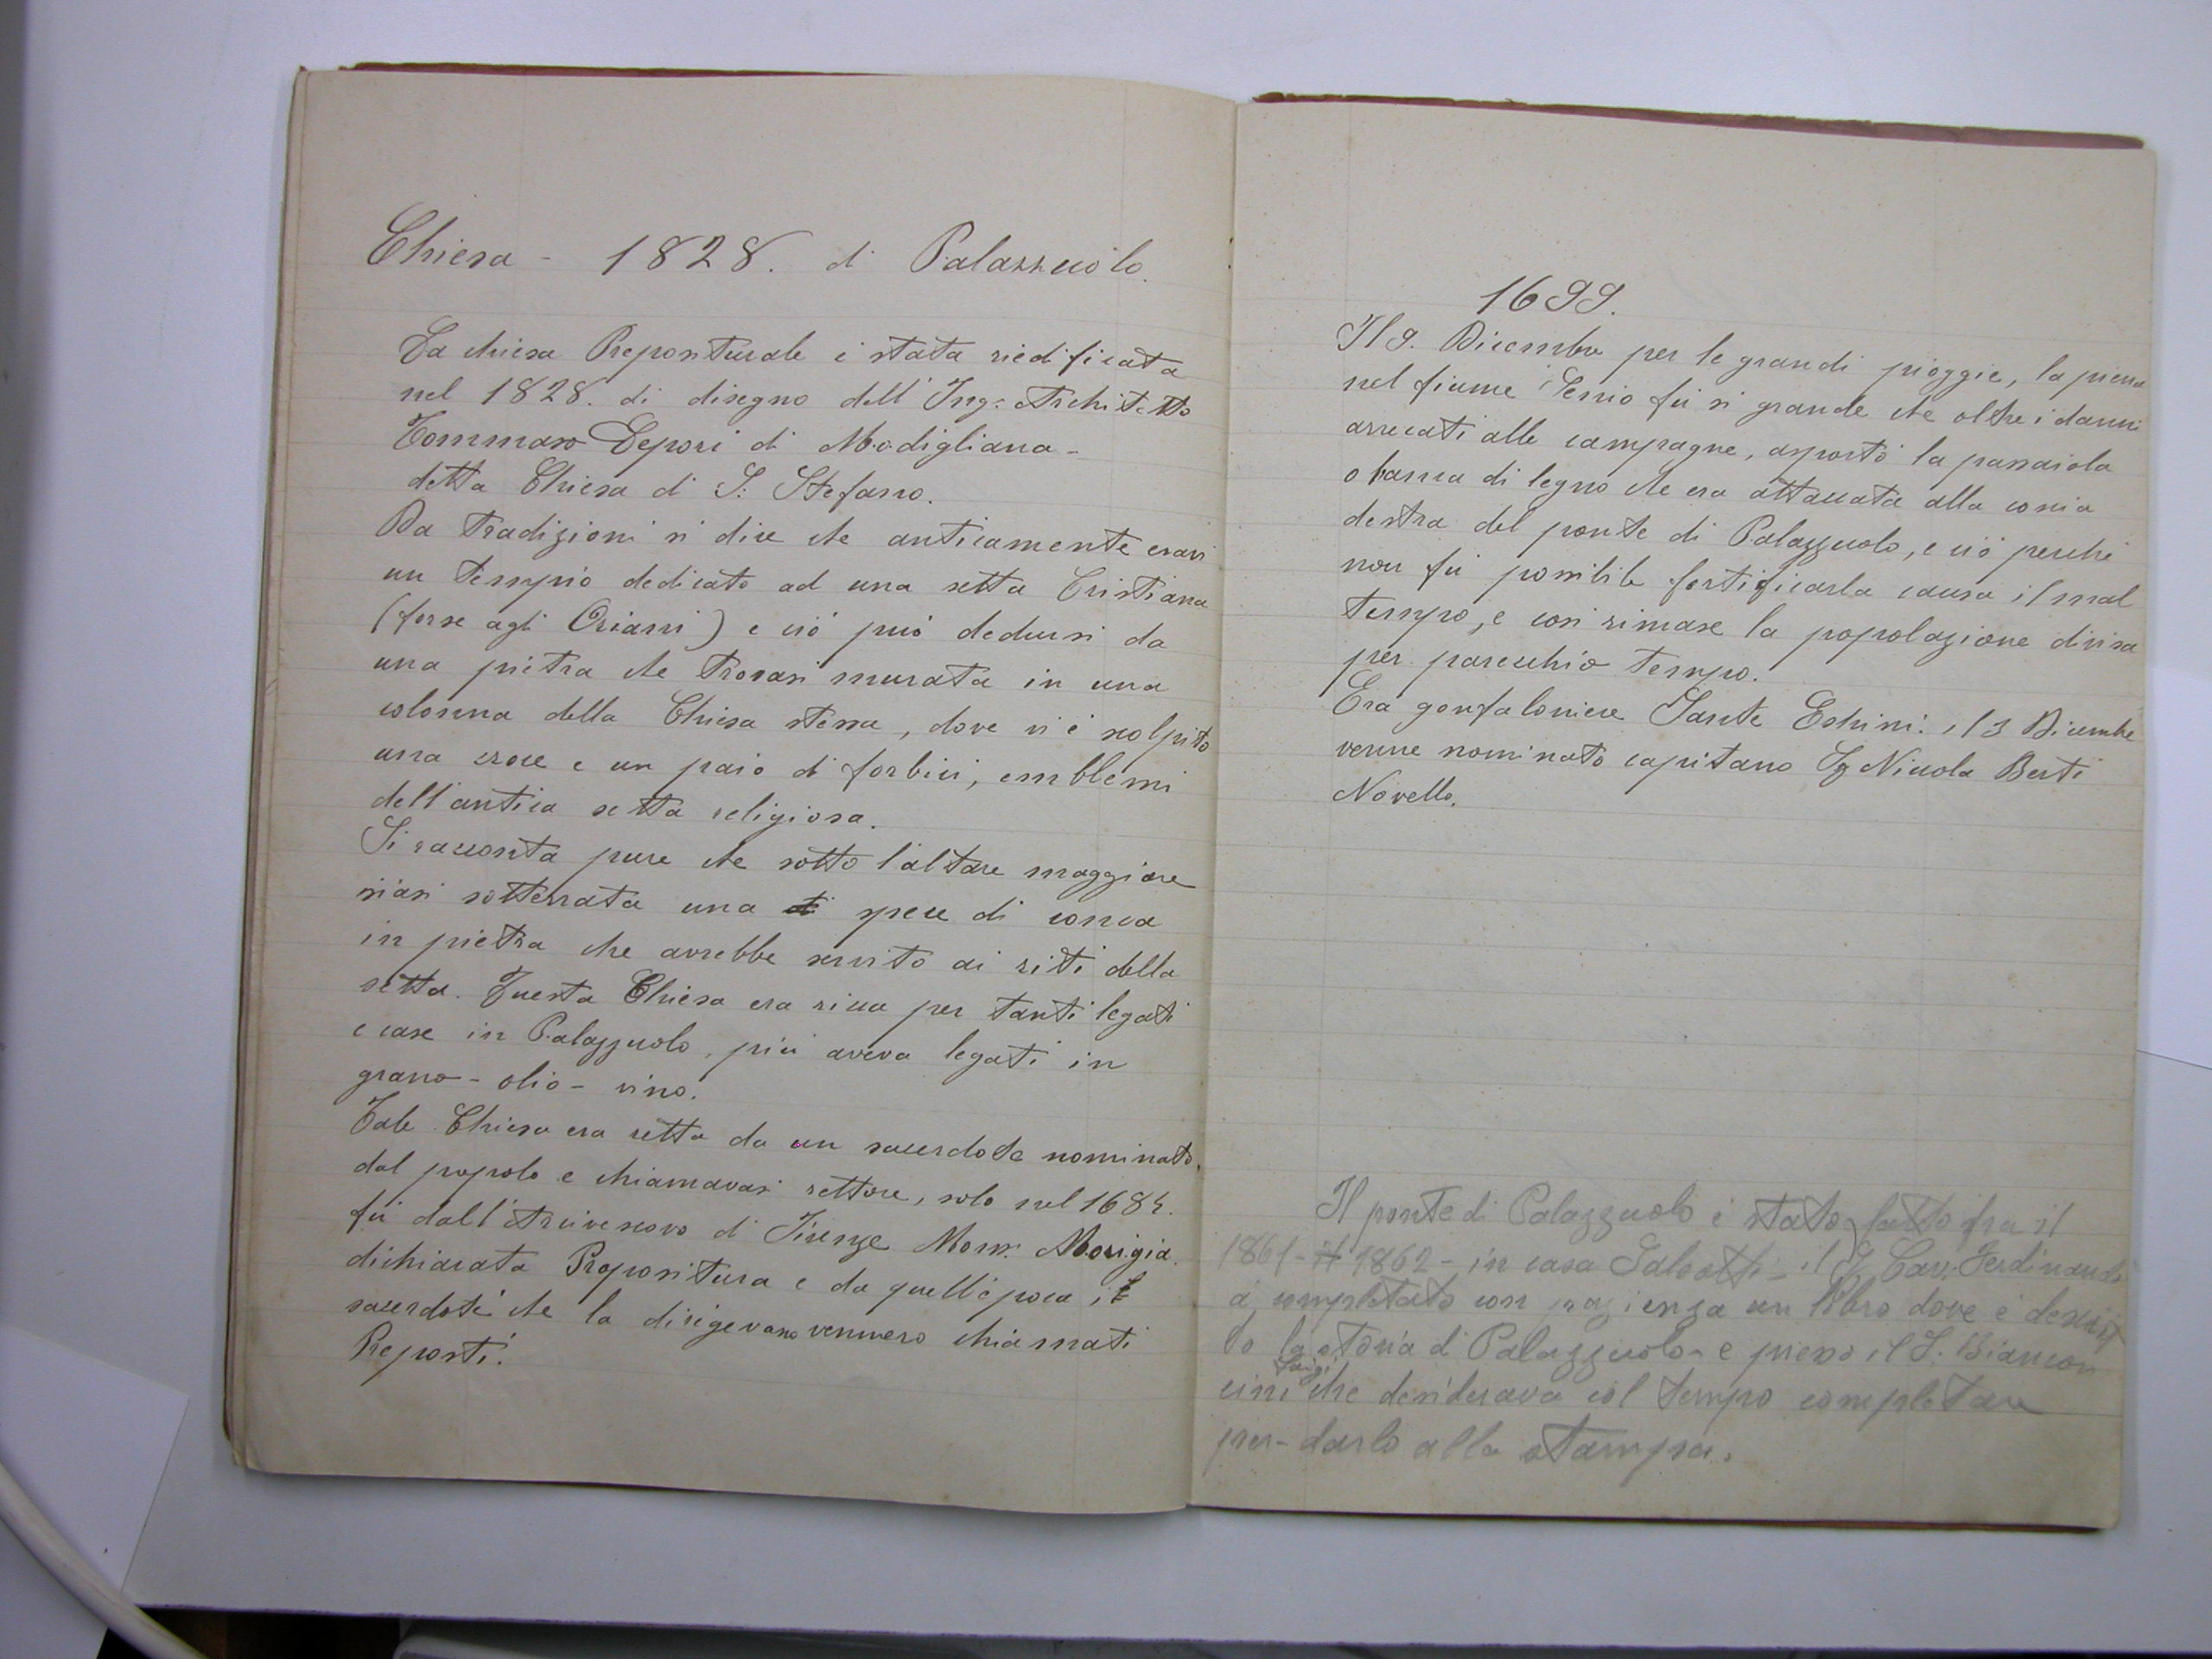 Chiesa - 1828. di Palazzuolo.
La chiesa Prepositurale è stata riedificata
nel 1828. di disegno dell'Ing: Architetto
Tommaso Lepori di Modigliana -
detta Chiesa di S: Stefano.
Da tradizioni si dice che anticamente eravi
un tempio dedicato ad una setta Cristiana
(forse agli Oriani) e ciò può dedursi da
una pietra che trovasi murata in una
colonna della Chiesa stessa, dove vi è scolpito
una croce e un paio di forbici, emblemi
dell'antica setta religiosa.
Si racconta pure che sotto l'altare maggiore
siasi sotterrata una spece di conca
in pietra che avrebbe servito ai riti della
setta. Questa Chiesa era ricca per tanti legati
e case in Palazzuolo, più aveva legati in
grano - olio - vino.
Tale Chiesa era retta da un sacerdote nominato
dal popolo e chiamavasi rettore, solo nel 1684.
fù dall'Arcivescovo di Firenze Mons. Morigia
dichiarata Propositura e da quell'epoca i
sacerdoti che la dirigevano vennero chiamati
Preposti.
1699.
Il 9. Dicembre per le grandi pioggie, la piena
nel fiume Senio fù si grande che oltre i danni
arrecati alle campagne, asportò la passaiola
o banca di legno che era attaccata alla coscia
destra del ponte di Palazzuolo, e ciò perchè
non fù possibile fortificarla causa il mal
tempo, e così rimase la popolazione divisa
per parecchio tempo.
Era gonfaloniere Sante Eschini. il 3 Dicembre
venne nominato capitano Sg Nicola Berti
Novello.
Il ponte di Palazzuolo è stato fatto fra il
1861 - il 1862 - in casa Galeotti - il Sg Cav. Ferdinando
à completato con pazienza un libro dove è descrit
to la storia di Palazzuolo - e presso il S. Biancon
cini Luigi che desiderava col tempo completare
per - darlo alla stampa.